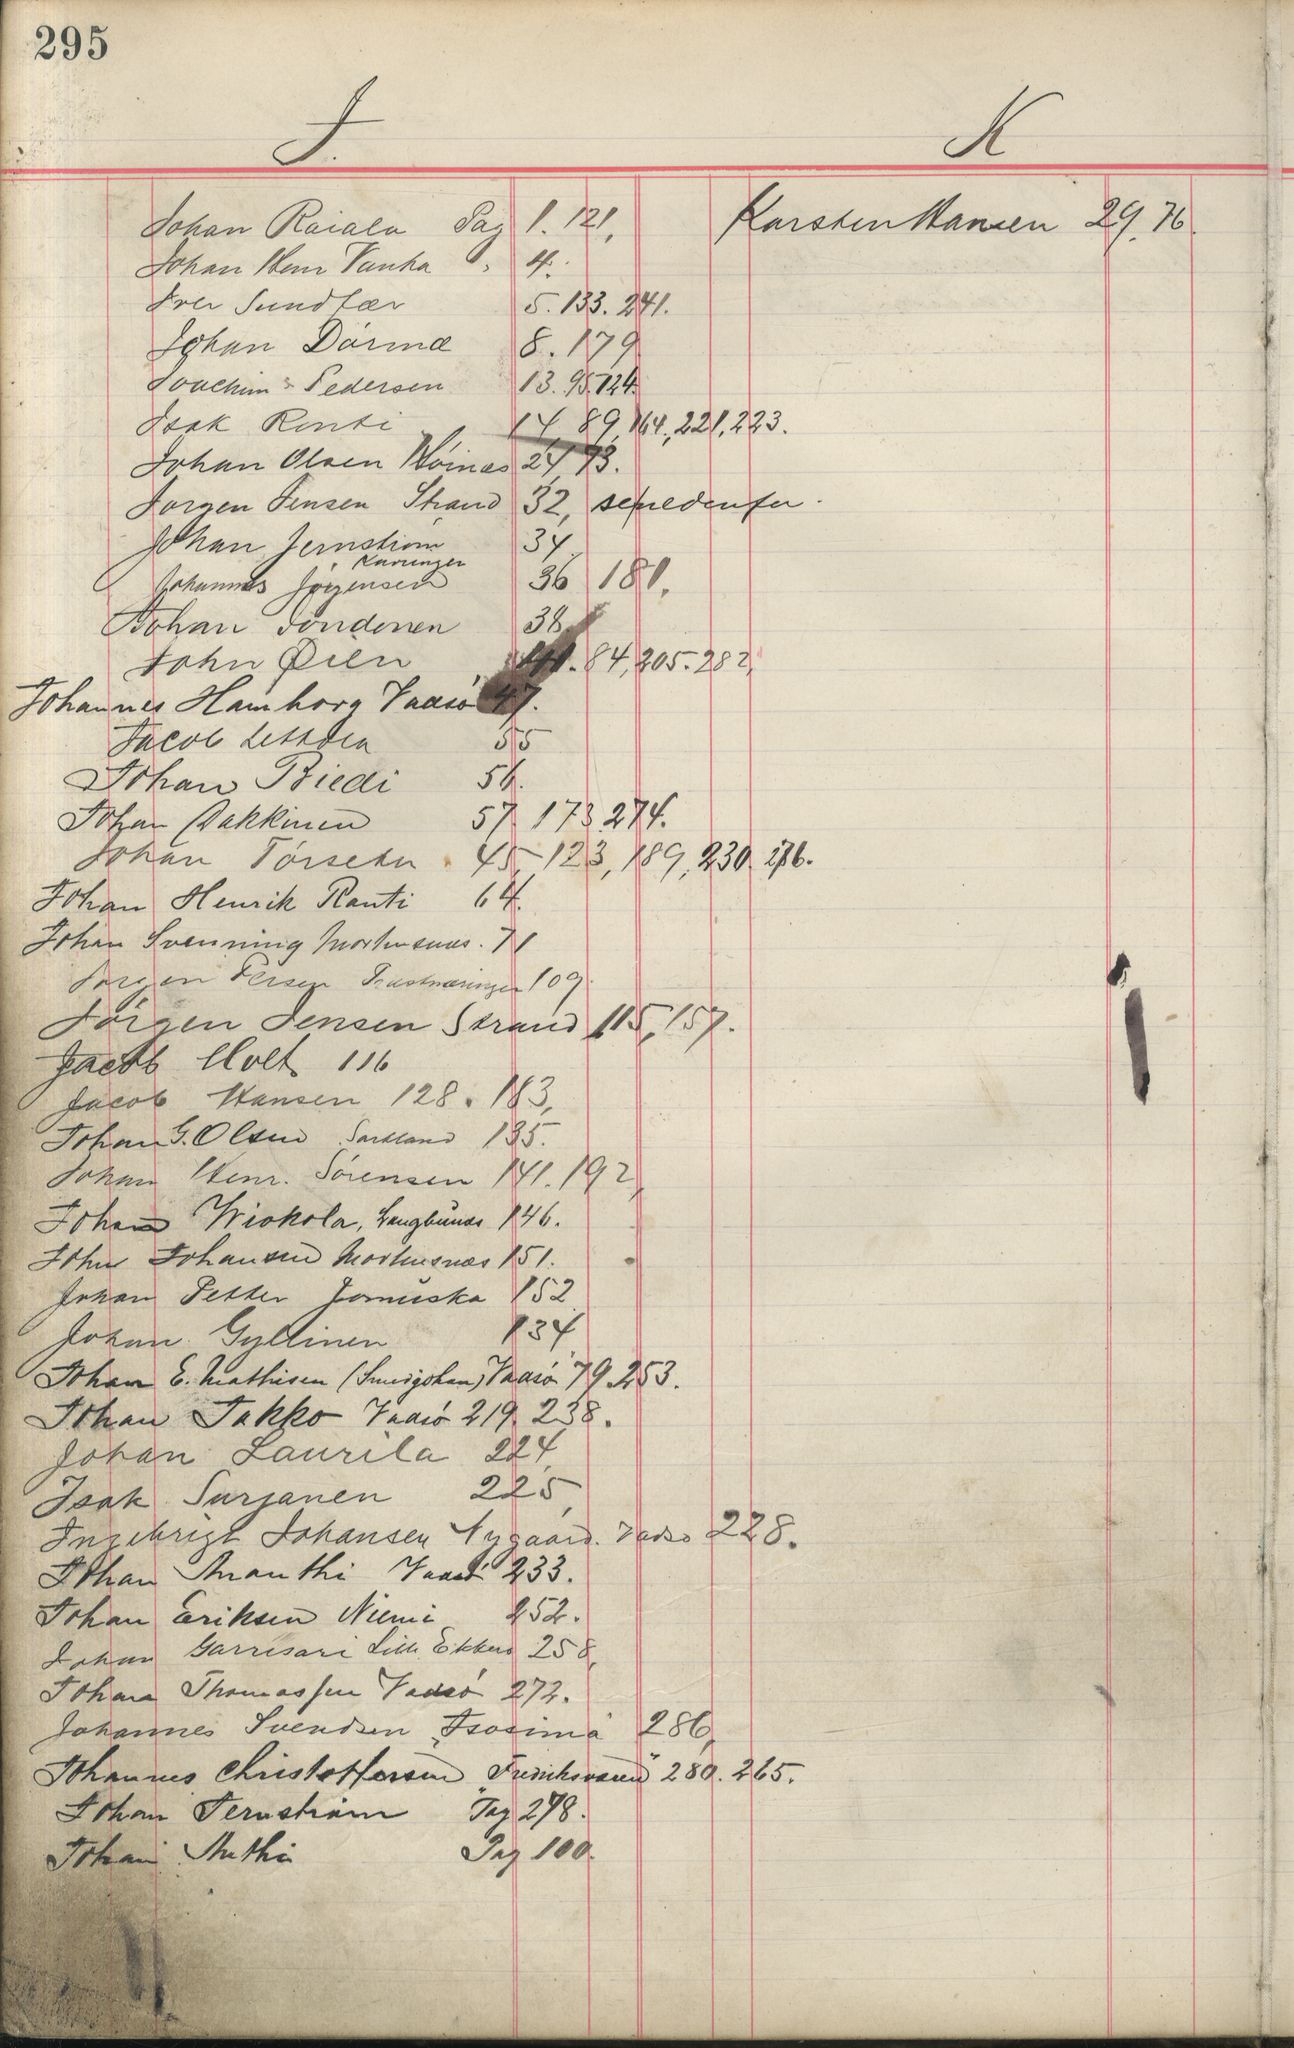 295
J.
K
Johan Raiala Pag 1. 121,
Karsten Hansen 29. 76.
Johan Henr Vanha " 4.
Iver Sundfær 5. 133. 241.
Johan Dørmæ 8. 179
Joachim Pedersen 13. 95. 124.
Isak Ranti 14 89, 164, 221, 223.
Johan Olsen Høinæs 24, 73.
Jørgen Jensen Strand 32, se nedenfor.
Johan Jernstrøm 34
Kariringer
Johannes Jørgensen 36 181,
Johan 38
John Øien 41. 84, 205. 282,
Johannes Hamborg Vadsø 47.
Jacob 55
Johan Biedi 56.
Johan Bakkinen 57. 173. 274.
Johan Tørseta 45, 123, 189, 230. 276.
Johan Henrik Ranti 64.
Johan Svenning Mortensnæs. 71
Jørgen Persen 109.
Jørgen Jensen Strand 115, 157.
Jacob Holt 116
Jacob Hansen 128. 183,
Johan G. Olsen 135.
Johan Henr. Sørensen 141. 192,
Johan Wiokola, Langbunes 146.
John Johansen Mortensnæs 151.
Johan Petter Jomuska 152
Johan Gyllinen 134
Johan E. Mathisen (Smedjohan) Vadsø 79. 253.
Johan Takko Vadsø 219. 238.
Johan Laurila 224,
Isak Surjanen 225,
Ingebrigt Johansen Nygaard. Vadsø 228.
Johan Ananthi Vadsø 233.
Johan Eriksen Niemi 252.
Johan Garrisari Lille Ekkerø 258,
Johan Thomassen Vadsø 272.
Johannes Svendsen 286,
Johannes Christoffersen "Fredriksværn" 280. 265.
Johan Jernstrøm Pag 278.
Johan Anthi Pag 100.